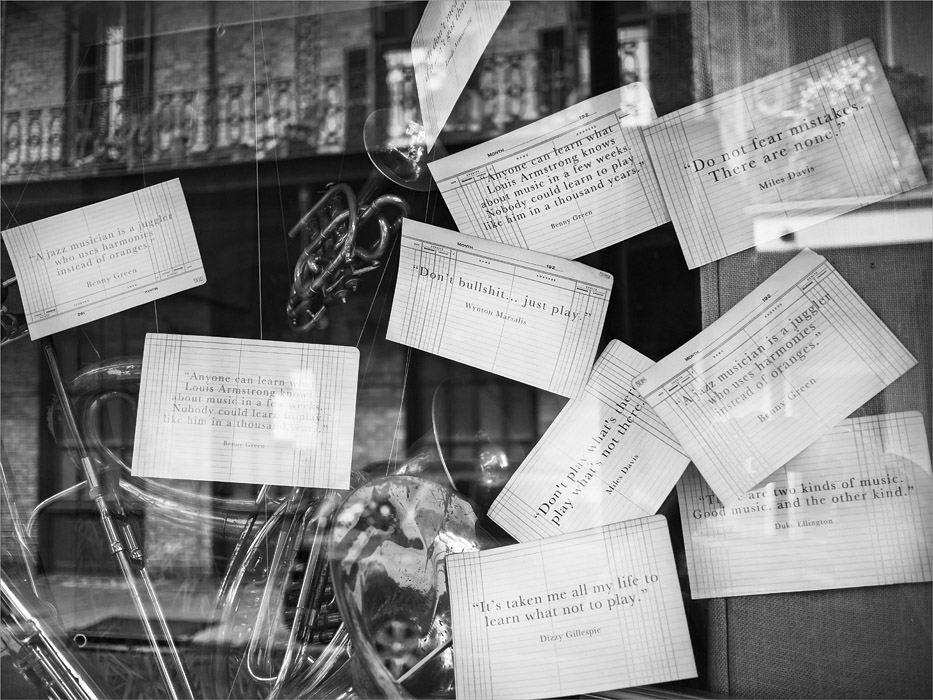 "Anyone can learn what
Louis Armstrong knows
about music in a few weeks.
Nobody could learn to play
like him in a thousand years."
Benny Green
MONTH
192
NAME
ADDRESS
"Do not fear mistakes.
There are none."
Miles Davis
"A jazz musician is a juggler
who uses harmonies
instead of oranges."
Benny Green
MONTH
192
MONTH
192
NAME
ADDRESS
"Don't bullshit... just play."
Wynton Marsalis
"Anyone can learn
Louis Armstrong
about music in a few weeks.
Nobody could learn
like him in a thousand
Benny Green
"Don't play what's there,
play what's not there.
Miles Davis
MONTH
192
"A jazz musician is a juggler
who uses harmonies
instead of oranges."
Benny Green
are two kinds of music.
Good music, and the other kind."
Duke Ellington
"It's taken me all my life to
learn what not to play."
Dizzy Gillespie